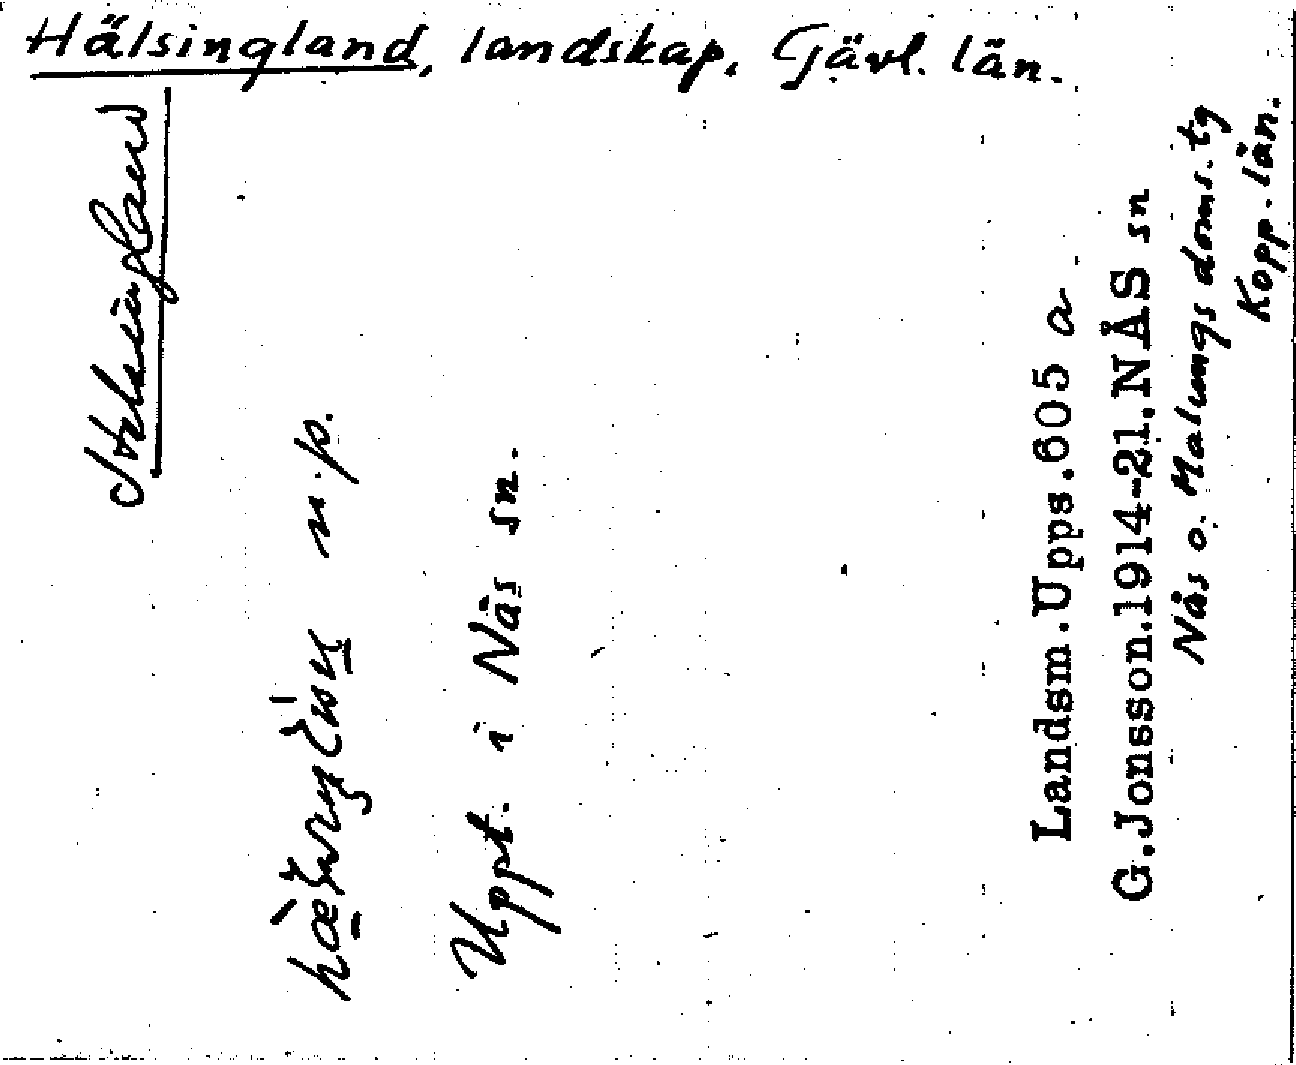 Hälsingland, landskap, Gävl. län.
Helsingland
n.p.
Uppt. i Nås sn.
Landsm.Upps.605 a
G.Jonsson.1914-21.NÅS sn
Nås o. Malungs doms.tg
Kopp. län.